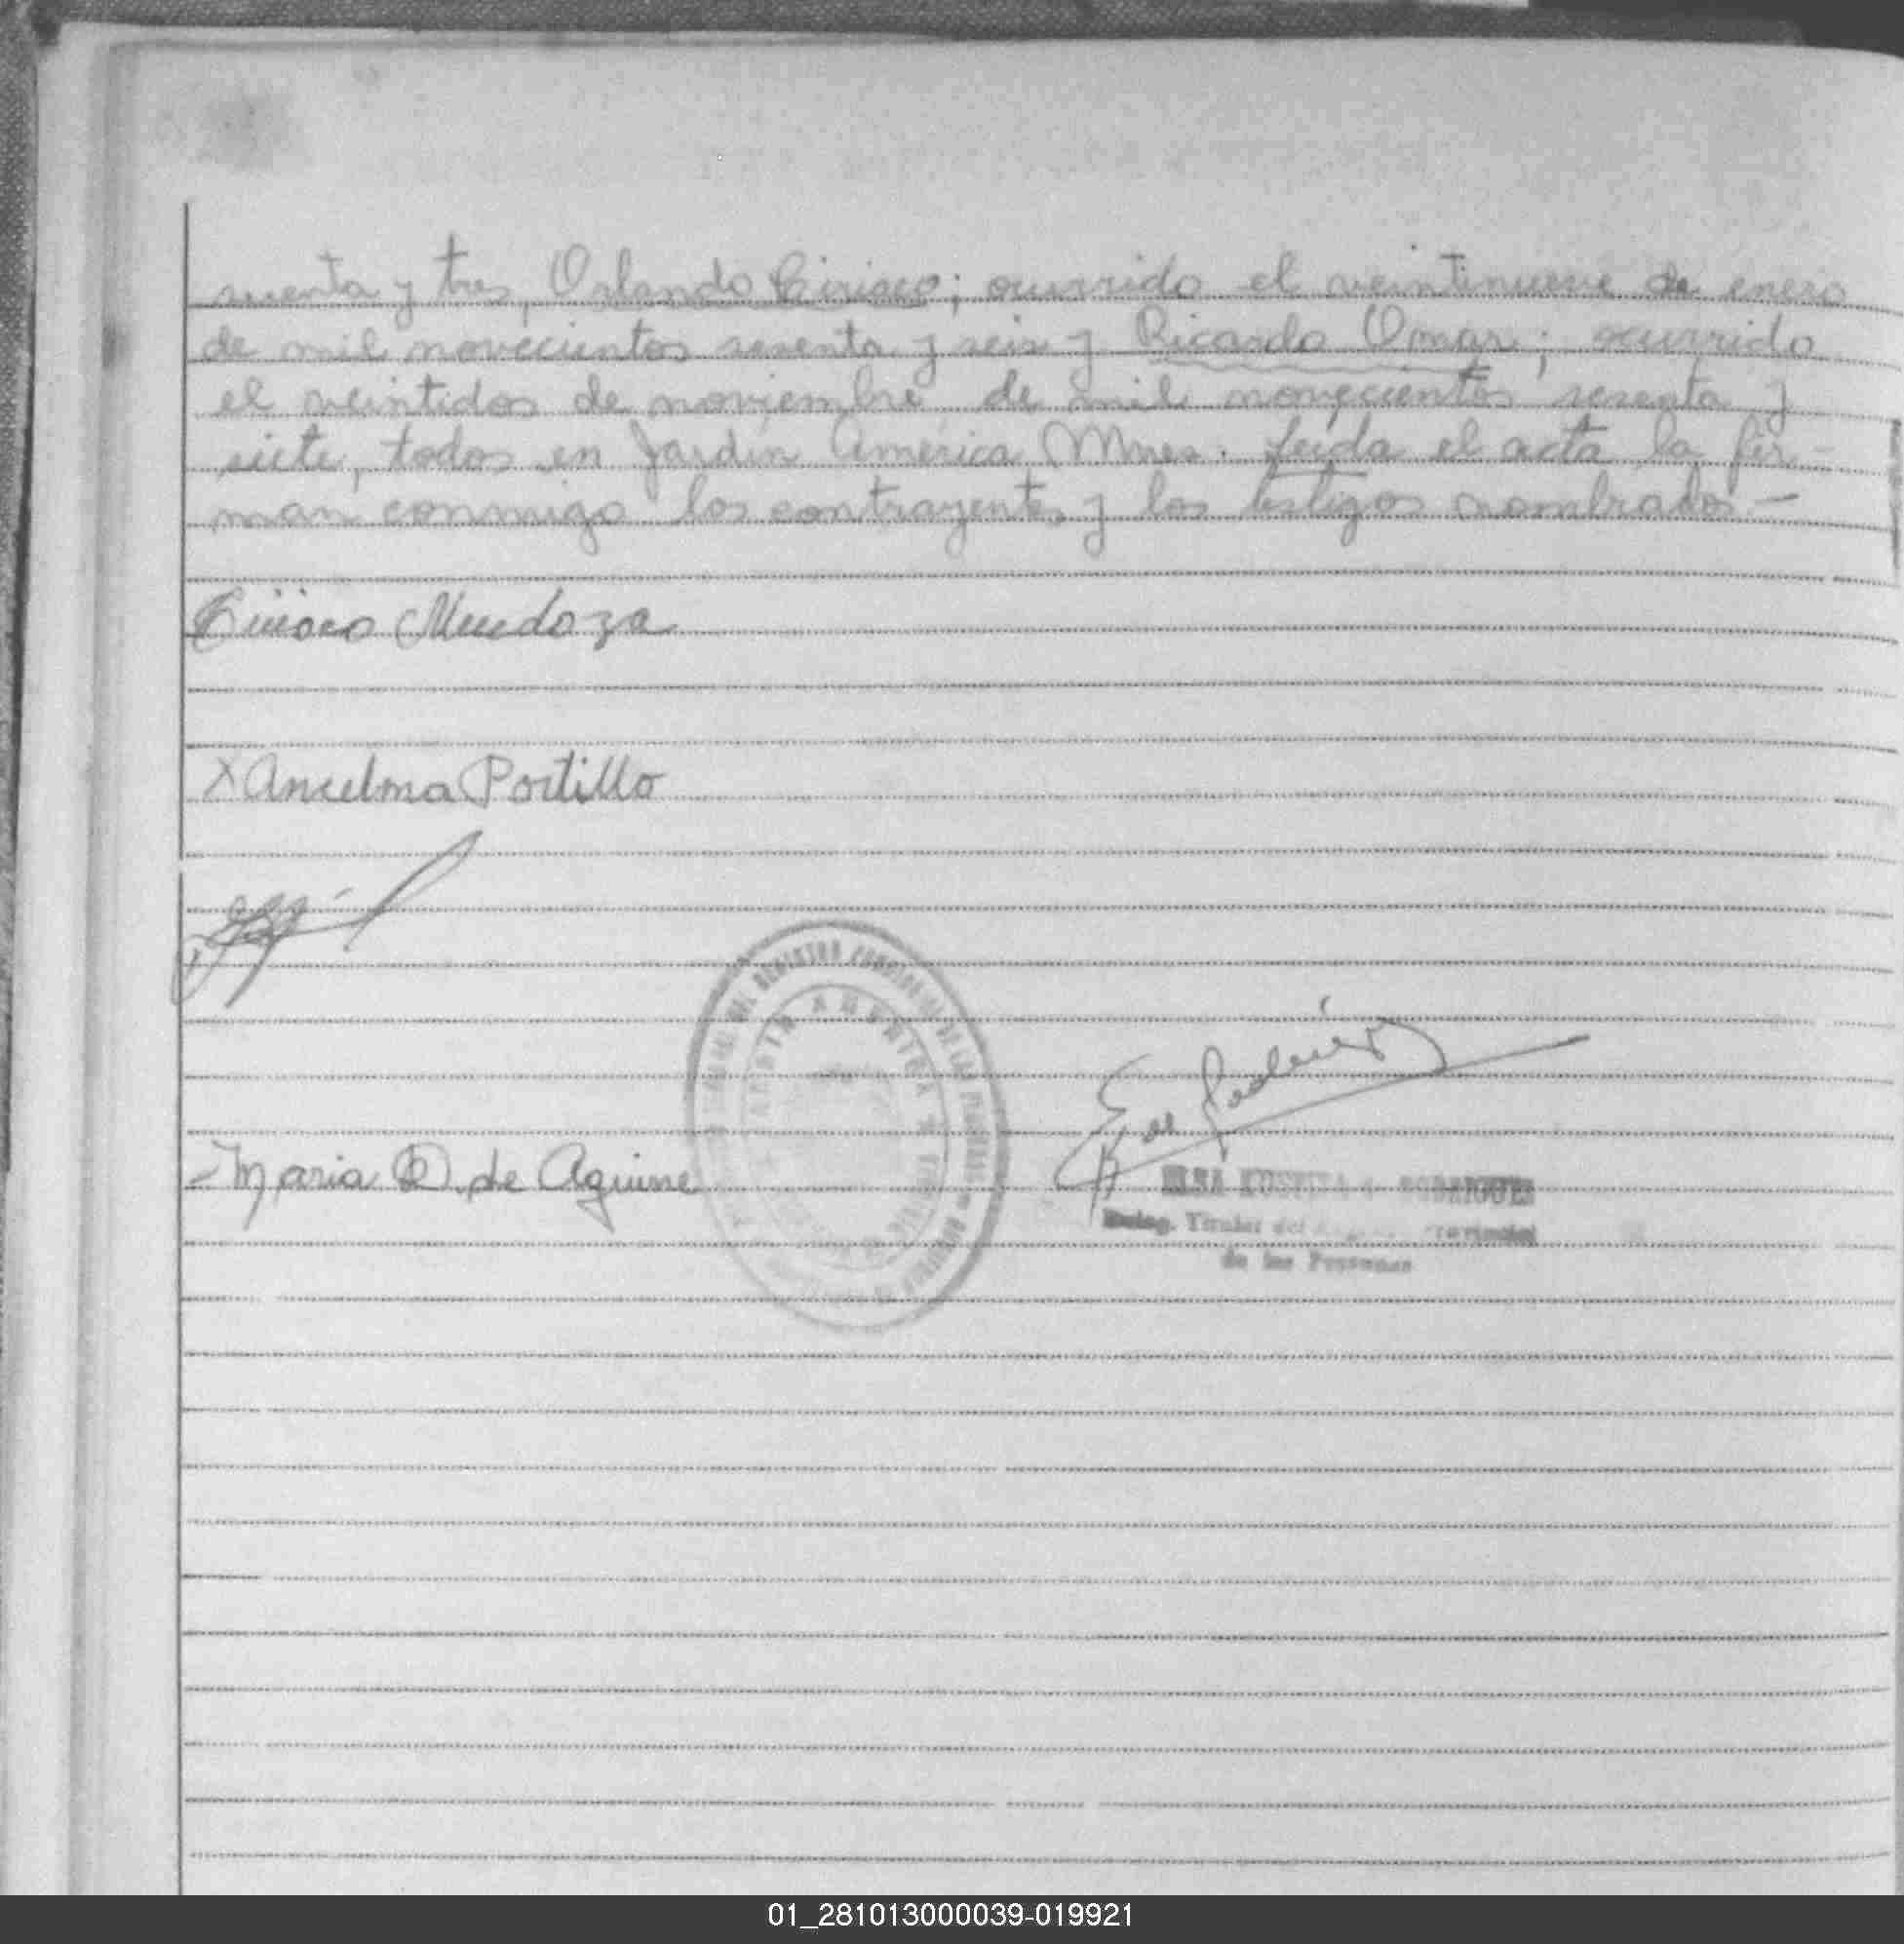 sesenta y tres, Orlando Ciriaco; ocurrido el veintinueve de enero
de mil novecientos sesenta y seis y Ricardo Omar; ocurrido
el veintidos de noviembre de mil novecientos sesenta y
siete, todos en Jardín América Mnes. Leída el acta la fir-
man conmigo los contrayentes y los testigos nombrados.-
Ciriaco Mendoza
X Ancelma Portillo
DEL REGISTRO PROVINCIAL DE LAS PERSONAS
JARDIN AMERICA
- Maria D. de Aguirre
ELSA RODRIGUEZ
Deleg. Titular del Provincial
de las Personas
01_281013000039-019921